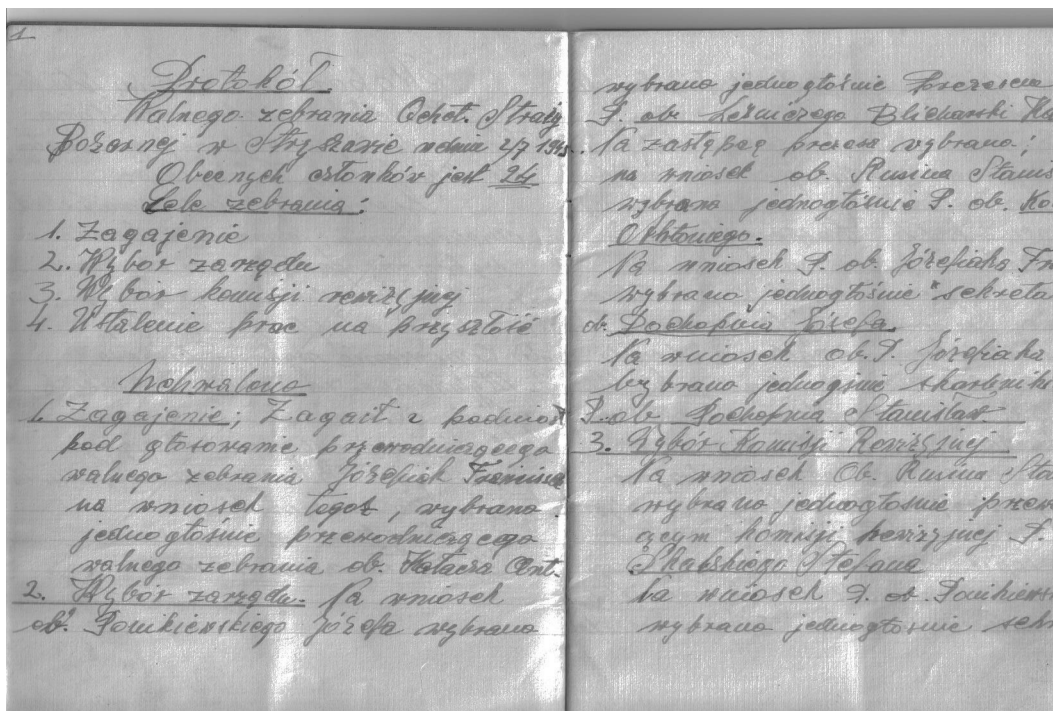 1
Protokół
Walnego zebrania Ochot. Straży
Pożarnej w Stryszawie w dniu 2/7 1945.
Obecnych członków jest 24
Cele zebrania:
1. Zagajenie
2. Wybór zarządu
3. Wybór komisji rewizyjnej
4. Ustalenie prac na przyszłość
Uchwalono
1. Zagajenie; Zagaił i podniósł
pod głosowanie przewodniczącego
walnego zebrania Józefiak Franciszek
na wniosek tegoż, wybrano
jednogłośnie przewodniczącego
walnego zebrania ob. Ant.
2. Wybór zarządu. Na wniosek
ob. Ponikiewskiego Józefa wybrano
wybrano jednogłośnie Prezesem
P. ob. Leśniczego Blicharski
Na zastępcę prezesa wybrano;
na wniosek ob. Rusina Stanis
wybrano jednogłośnie P. ob.
Na wniosek P. ob. Józefiaka Fr
wybrano jednogłośnie sekreta
ob. Pochopnia Józefa.
Na wniosek ob. P. Józefiaka
wybrano jednogłośnie skarbnik
P. ob. Pochopnia Stanisław.
3. Wybór Komisji Rewizyjnej
Na wniosek Ob. Rusina Sta
wybrano jednogłośnie przew
ącym komisji rewizyjnej P.
Skalskiego Stefana
Na wniosek P. ob. Ponikiews
wybrano jednogłośnie sekr